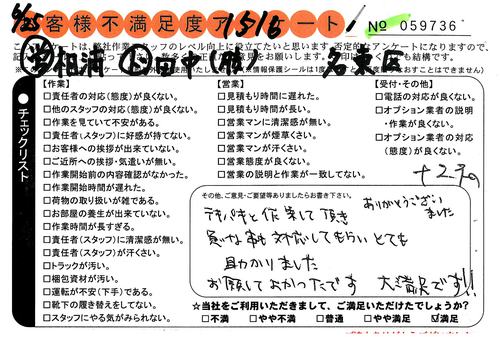 6/25 お客様不満足度アンケート! 1515 № 059736
相浦 田中(勝) 名東区
チェックリスト
【作業】
□責任者の対応(態度)が良くない。
□他のスタッフの対応(態度)が良くない。
□作業を見ていて不安がある。
□責任者(スタッフ)に好感が持てない。
□お客様への挨拶が出来ていない。
□ご近所への挨拶・気遣いが無い。
□作業開始前の内容確認がなかった。
□作業開始時間が遅れた。
□荷物の取り扱いが雑である。
□お部屋の養生が出来ていない。
□作業時間が長すぎる。
□責任者(スタッフ)に清潔感が無い。
□責任者(スタッフ)が汗くさい。
□トラックが汚い。
□梱包資材が汚い。
□運転が不安(下手)である。
□靴下の履き替えをしてない。
□スタッフにやる気がみられない。
【営業】
□見積もり時間に遅れた。
□見積もり時間が長い。
□営業マンに清潔感が無い。
□営業マンが煙草くさい。
□営業マンが汗くさい。
□営業態度が良くない。
□営業の説明と作業が一致してない。
【受付・その他】
□電話の対応が良くない。
□オプション業者の説明
・作業が良くない。
□オプション業者の対応
(態度)が良くない。
その他、ご意見・ご要望等ありましたらお書き下さい。
ありがとうござい
ました
テキパキと作業して頂き
急な事も対応してもらいとても
助かりました
お願いしてよかったです 大満足です!!
☆当社をご利用いただきまして、ご満足いただけたでしょうか?
□不満 □やや不満 □普通 □やや満足 ☑満足